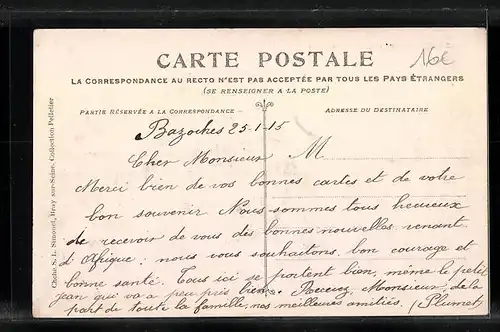 CARTE POSTALE
16€
LA CORRESPONDANCE AU RECTO N'EST PAS ACCEPTÉE PAR TOUS LES PAYS ÉTRANGERS
(SE RENSEIGNER A LA POSTE)
PARTIE RÉSERVÉE A LA CORRESPONDANCE
ADRESSE DU DESTINATAIRE
Bazoches 25-1-15
Cher Monsieur M
Merci bien de vos bonnes cartes et de votre
bon souvenir Nous sommes tous heureux
de recevoir de vous des bonnes nouvelles venant
d'Afrique; nous vous souhaitons bon courage et
bonne santé. Tous ici se portent bien, même le petit
jean qui va a peu près bien. Recevez, Monsieur, de la
part de toute la famille, nos meilleures amitiés (Plumet)
Cliché S. L. Simonet, Bray-sur-Seine. Collection Pelletier